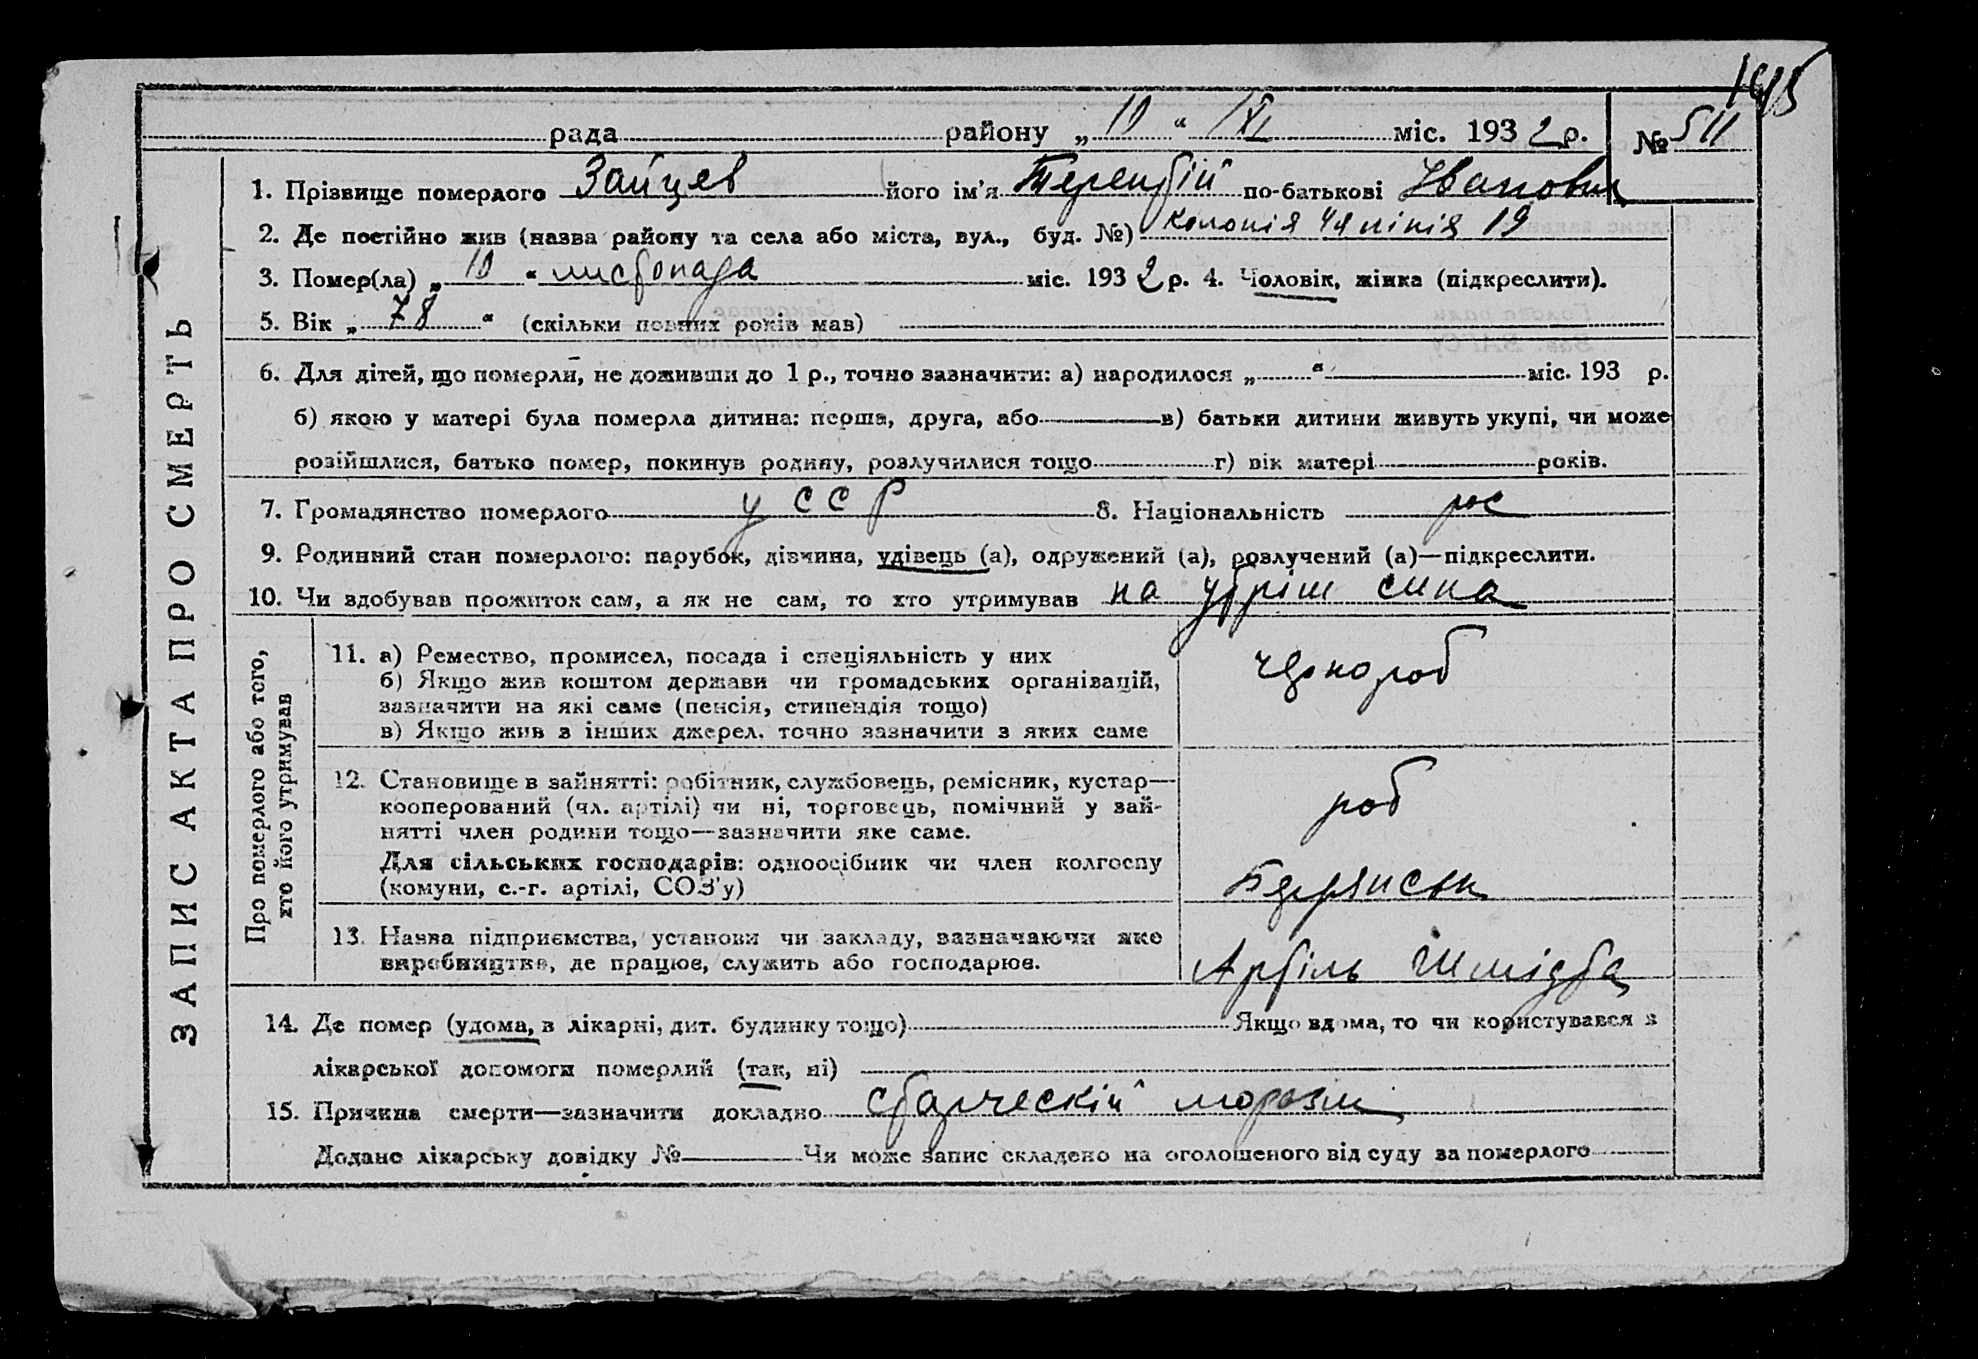 1415
рада районну „ 10 “ XI міс. 193 2 р. № 511
1. Прізвище померлого Зайцев його ім'я Терентій по-батькові Іванович
2. Де постійно жив (назва району та села або міста, вул., буд. №) колонія 4я лінія 19
3. Помер(ла) „ 10 “ листопада міс. 193 2 р. 4. Чоловік, жінка (підкреслити).
5. Вік „ 78 “ (скільки повних років мав)
6. Для дітей, що померли, не доживши до 1 р., точно зазначити: а) народилося „ “ міс. 193 р.
б) якою у матері була померла дитина: перша, друга, або в) батьки дитини живуть укупі, чи може
розійшлися, батько помер, покинув родину, розлучилися тощо г) вік матері років.
7. Громадянство померлого УССР 8. Національність рос
9. Родинний стан померлого: парубок, дівчина, удівець (а), одружений (а), розлучений (а)—підкреслити.
10. Чи здобував прожиток сам, а як не сам, то хто утримував на утрім сина
ЗАПИС АКТА ПРО СМЕРТЬ
Про померлого або того,
хто його утримував
11. а) Ремество, промисел, посада і спеціяльність у них
б) Якщо жив коштом держави чи громадських організацій,
зазначити на які саме (пенсія, стипендія тощо)
в) Якщо жив з інших джерел, точно зазначити з яких саме
чорнороб
12. Становище в зайнятті: робітник, службовець, ремісник, кустар—
кооперований (чл. артілі) чи ні, торговець, помічний у зай-
нятті член родини тощо—зазначити яке саме.
Для сільських господарів: одноосібник чи член колгоспу
(комуни, с.-г. артілі, СОЗ'у)
роб
13. Назва підприємства, установи чи закладу, зазначаючи яке
виробництво, де працює, служить або господарює.
Бердянськ
Артіль Шмідта
14. Де помер (удома, в лікарні, дит. будинку тощо) Якщо вдома, то чи користувався з
лікарської допомоги померлий (так, ні)
15. Причина смерти—зазначити докладно старческій моразм
Додано лікарську довідку № Чи може запис складено на оголошеного від суду за померлого